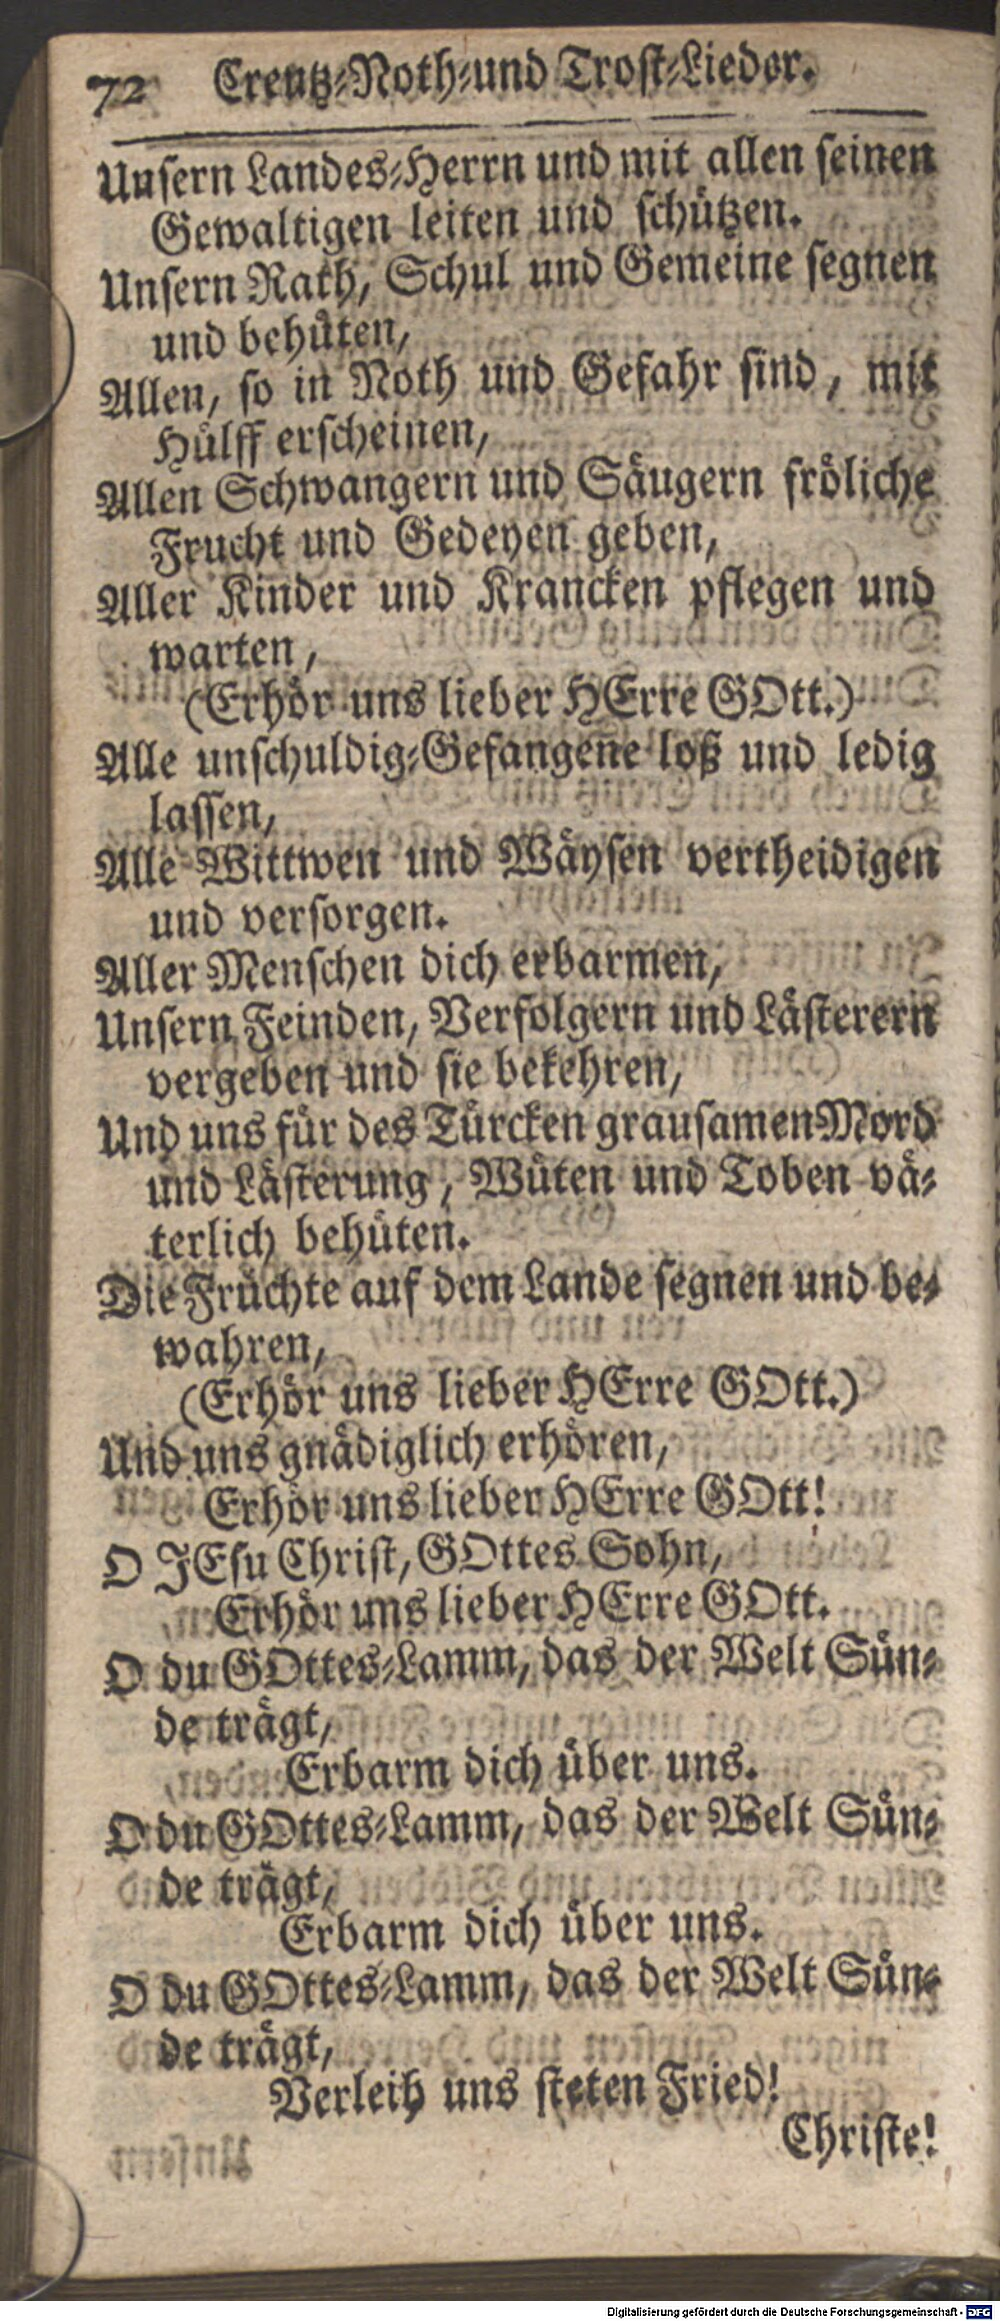 72 Creutz-Noth-und Trost-Lieder.
Unsern Landes-Herrn und mit allen seinen
Gewaltigen leiten und schützen.
Unsern Rath, Schul und Gemeine segnen
und behüten,
Allen, so in Noth und Gefahr sind, mit
Hülff erscheinen,
Allen Schwangern und Säugern fröliche
Frucht und Gedeyen geben,
Aller Kinder und Krancken pflegen und
warten,
(Erhör uns lieber HErre GOtt.)
Alle unschuldig-Gefangene loß und ledig
lassen,
Alle Wittwen und Wäysen vertheidigen
und versorgen.
Aller Menschen dich erbarmen,
Unsern Feinden, Verfolgern und Lästerern
vergeben und sie bekehren,
Und uns für des Türcken grausamen Mord
und Lästerung, Wüten und Toben vä-
terlich behüten.
Die Früchte auf dem Lande segnen und be-
wahren,
(Erhör uns lieber HErre GOtt.)
Und uns gnädiglich erhören,
Erhör uns lieber HErre GOtt!
O JEsu Christ, GOttes Sohn,
Erhör uns lieber HErre GOtt.
O du GOttes-Lamm, das der Welt Sün-
de trägt,
Erbarm dich über uns.
O du GOttes-Lamm, das der Welt Sün-
de trägt,
Erbarm dich über uns.
O du GOttes-Lamm, das der Welt Sün-
de trägt,
Verleih uns steten Fried!
Christe!
Digitalisierung gefördert durch die Deutsche Forschungsgemeinschaft - DFG